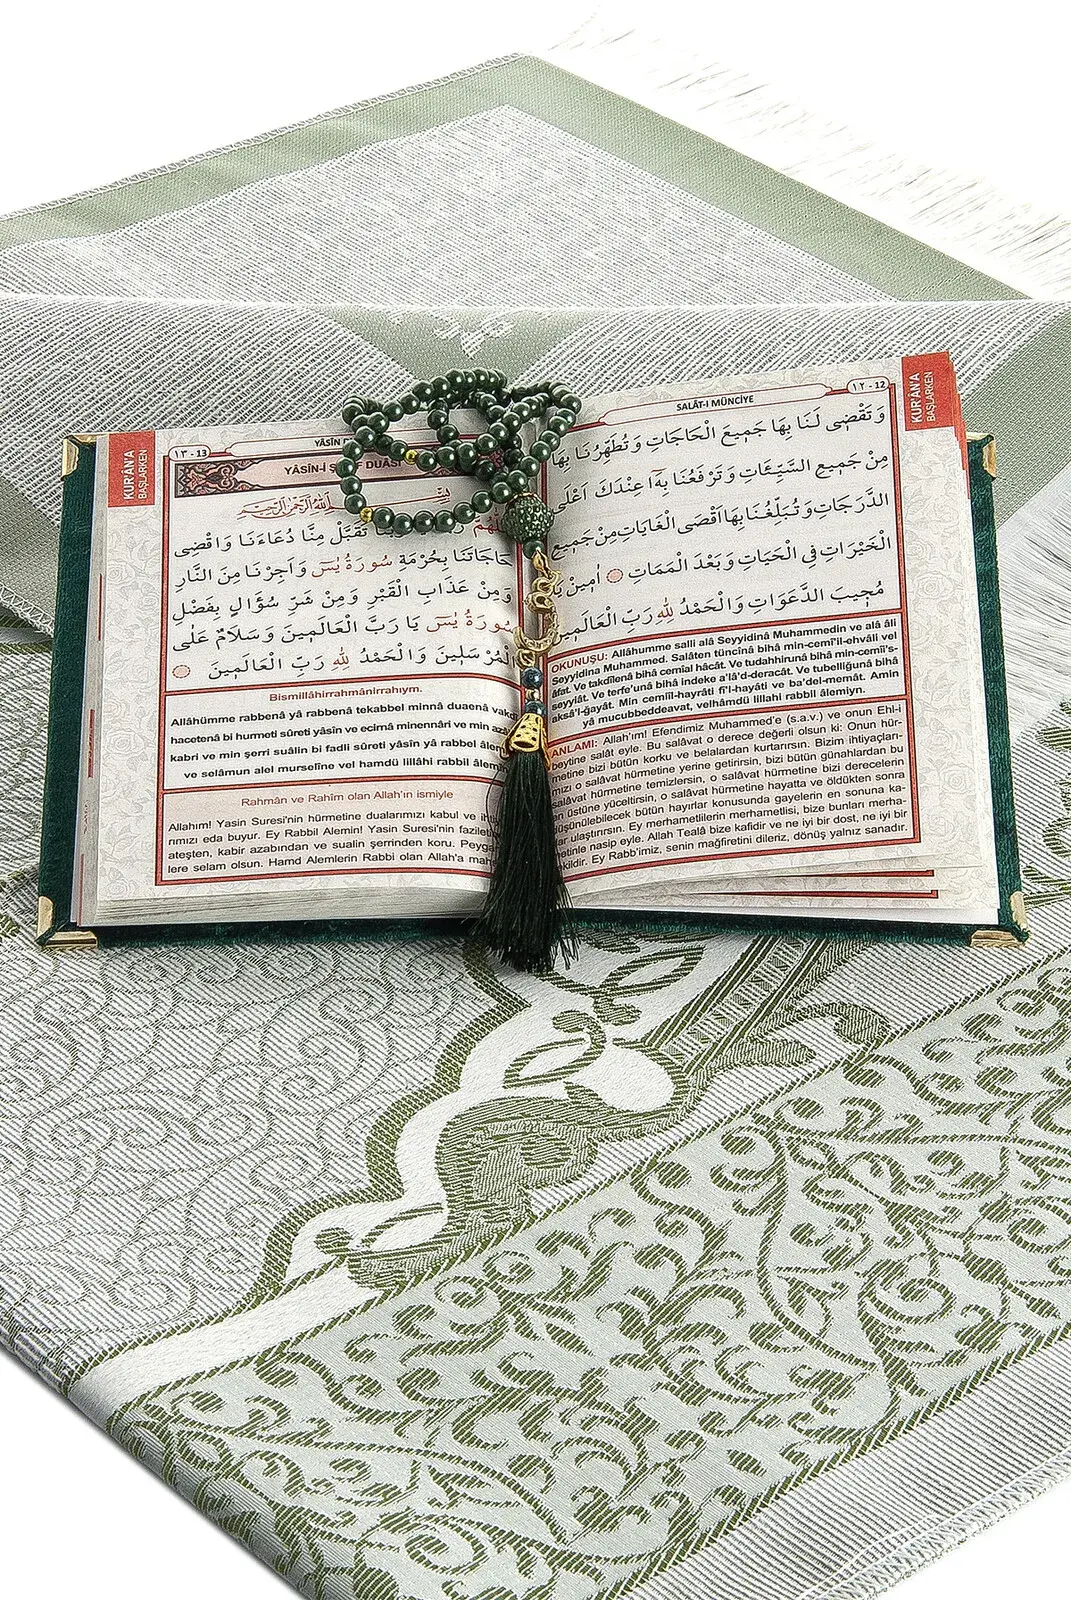 KUR'ÂN'A
BAŞLARKEN
١٣ - 13
YÂSÎN
YÂSÎN-İ DUASI
تَقَبَّلْ مِنَّا دُعَاءَنَا وَاقْضِى
حَاجَاتَنَا بِحُرْمَةِ سُورَةُ يٰسٓ وَاَجِرْنَا مِنَ النَّارِ
وَمِنْ عَذَابِ الْقَبْرِ وَمِنْ شَرِّ سُؤَالٍ بِفَضْلِ
سُورَةُ يٰسٓ يَا رَبَّ الْعَالَمِينَ وَسَلَامٌ عَلَى
الْمُرْسَلِينَ وَالْحَمْدُ لِلّٰهِ رَبِّ الْعَالَمِينَ
Bismillâhirrahmânirrahıym.
Allâhümme rabbenâ yâ rabbenâ tekabbel minnâ duaenâ vakd
hacetenâ bi hurmeti sûreti yâsîn ve ecirnâ minennâri ve min azâ
kabri ve min şerri suâlin bi fadli sûreti yâsîn yâ rabbel âlem
ve selâmun alel murselîne vel hamdü lillâhi rabbil âlem
Rahmân ve Rahîm olan Allah'ın ismiyle
Allahım! Yasin Suresi'nin hürmetine dualarımızı kabul ve ih
rımızı eda buyur. Ey Rabbil Alemin! Yasin Suresi'nin fazilet
ateşten, kabir azabından ve sualin şerrinden koru. Peyga
lere selam olsun. Hamd Alemlerin Rabbi olan Allah'a mah
SALÂT-I MÜNCİYE
١٢ - 12
KUR'ÂN'A
BAŞLARKEN
وَ تَقْضِى لَنَا بِهَا جَمِيعَ الْحَاجَاتِ وَ تُطَهِّرُنَا بِهَا
مِنْ جَمِيعِ السَّيِّئَاتِ وَ تَرْفَعُنَا بِهَا عِنْدَكَ اَعْلَى
الدَّرَجَاتِ وَ تُبَلِّغُنَا بِهَا اَقْصَى الْغَايَاتِ مِنْ جَمِيعِ
الْخَيْرَاتِ فِى الْحَيَاتِ وَ بَعْدَ الْمَمَاتِ اٰمِينَ يَا
مُجِيبَ الدَّعَوَاتِ وَالْحَمْدُ لِلّٰهِ رَبِّ الْعَالَمِينَ
OKUNUŞU: Allâhumme salli alâ Seyyidinâ Muhammedin ve alâ âli
Seyyidina Muhammed. Salâten tüncînâ bihâ min-cemî'il-ehvâli vel
âfat. Ve takdîlenâ bihâ cemîal hâcât. Ve tudahhirunâ bihâ min-cemîi's-
seyyiât. Ve terfe'unâ bihâ indeke a'lâ'd-deracât. Ve tubelliğunâ bihâ
aksâ'l-ğayât. Min cemîil-hayrâti fi'l-hayâti ve ba'del-memât. Amin
yâ mucubbeddeavat, velhâmdü lillahi rabbil âlemiyn.
ANLAMI: Allah'ım! Efendimiz Muhammed'e (s.a.v.) ve onun Ehl-i
beytine salât eyle. Bu salâvat o derece değerli olsun ki: Onun hür-
metine bizi bütün korku ve belalardan kurtarırsın. Bizim ihtiyaçları-
mızı o salâvat hürmetine yerine getirirsin, bizi bütün günahlardan bu
salâvat hürmetine temizlersin, o salâvat hürmetine bizi derecelerin
en üstüne yüceltirsin, o salâvat hürmetine hayatta ve öldükten sonra
düşünülebilecek bütün hayırlar konusunda gayelerin en sonuna ka-
ar ulaştırırsın. Ey merhametlilerin merhametlisi, bize bunları merha-
etinle nasip eyle. Allah Tealâ bize kafidir ve ne iyi bir dost, ne iyi bir
ekildir. Ey Rabb'imiz, senin mağfiretini dileriz, dönüş yalnız sanadır.